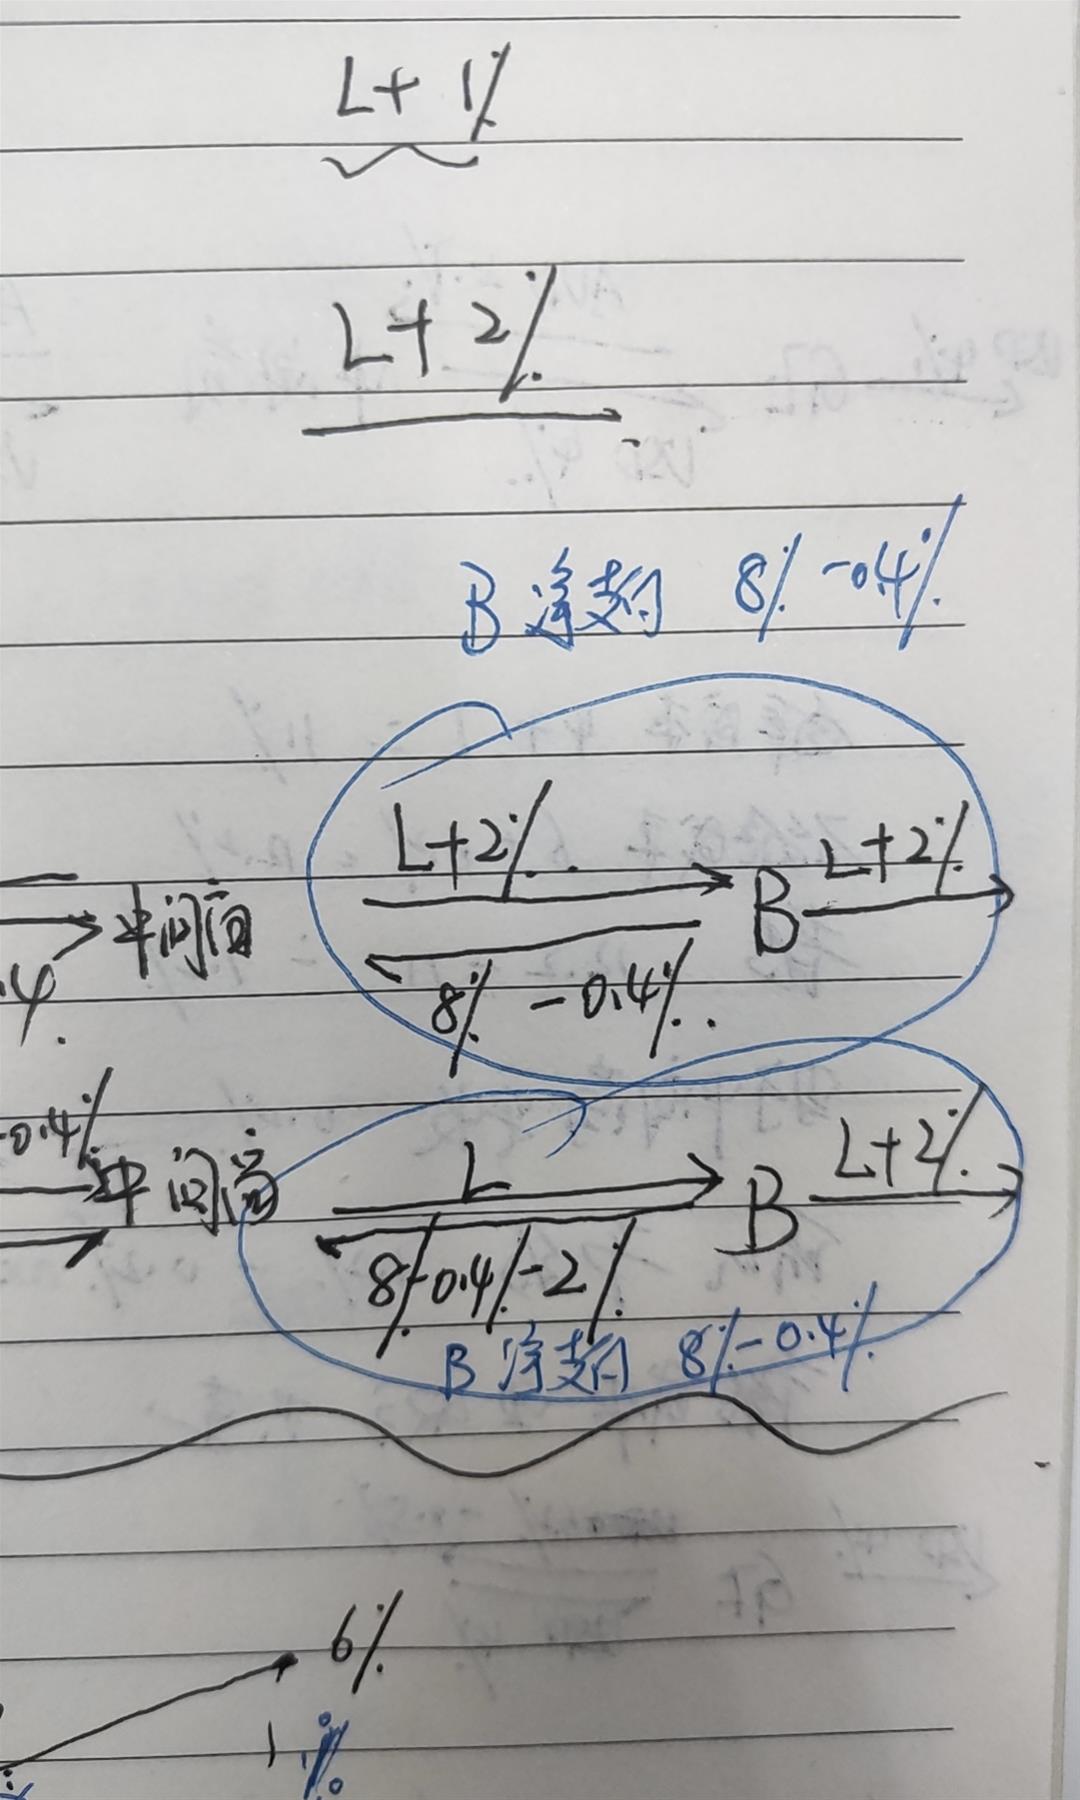 L+1%
L+2%
B 净支付 8% -0.4%
L+2%
L+2%
中间商
B
8% -0.4%
.4
-0.4%
L
L+2%
中间商
B
8%-0.4%-2%
B 净支付 8%-0.4%
6%
1%